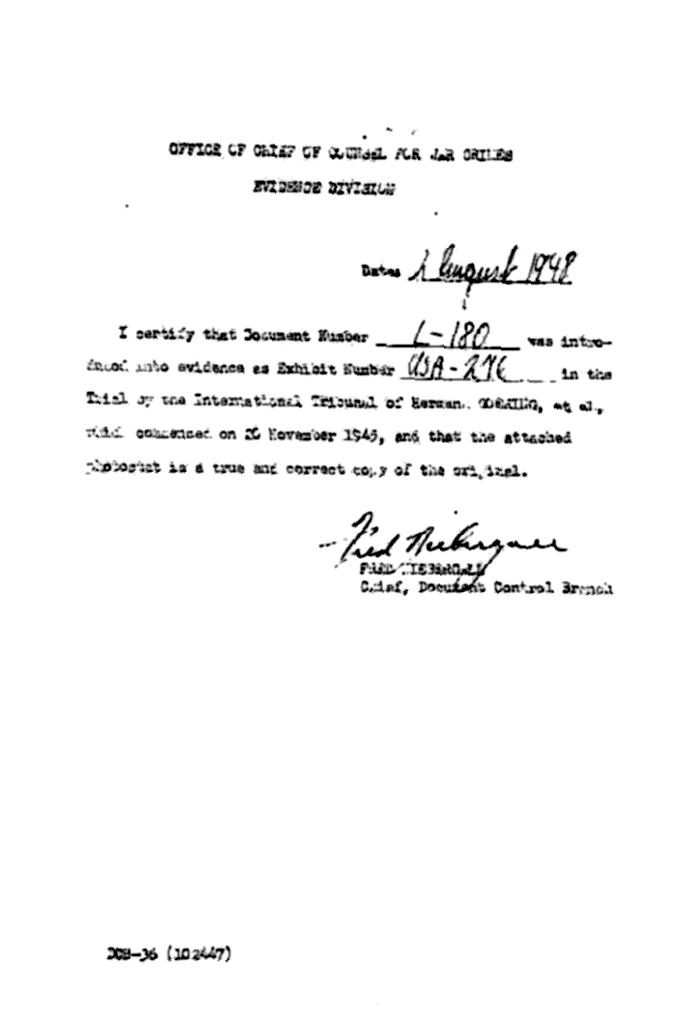 OFFICE OF CHIEF OF COUNSEL FOR WAR CRIMES
EVIDENCE DIVISION
Date: August 1948
I certify that Document Number L-180 was intro-
duced into evidence as Exhibit Number USA-276 in the
Trial by the International Tribunal of Herman GOERING, et al.,
which commenced on 20 November 1945, and that the attached
photostat is a true and correct copy of the original.
Fred Niebergall
FRED NIEBERGALL
Chief, Document Control Branch
DCB-36 (102447)